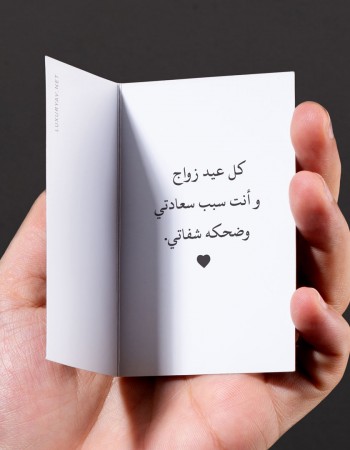 كل عيد زواج
و أنت سبب سعادتي
وضحكه شفاتي.
LUXURYAY.NET